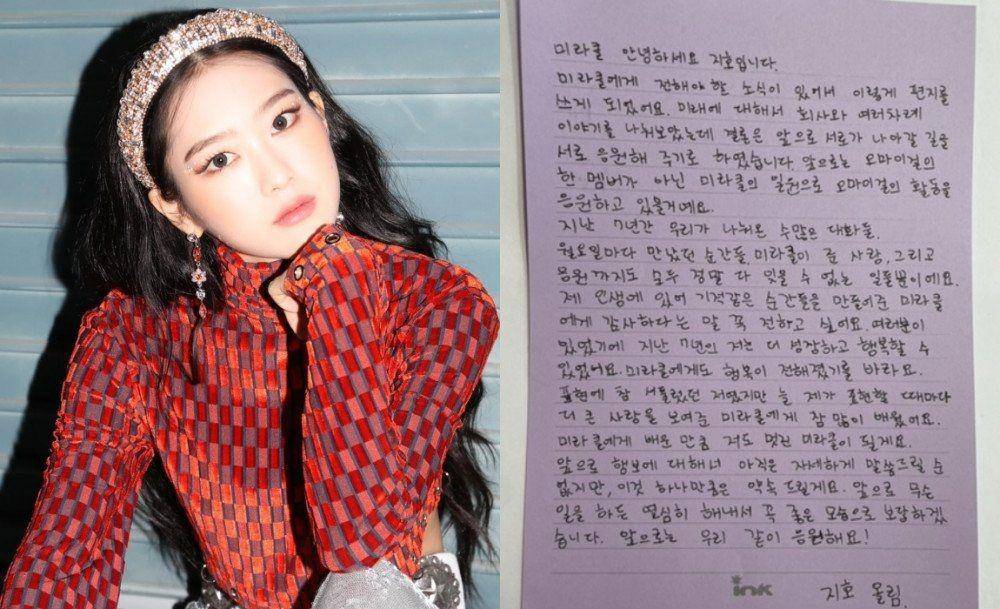 미라클 안녕하세요 지호입니다.
미라클에게 전해야 할 소식이 있어서 이렇게 편지를
쓰게 되었어요. 미래에 대해서 회사와 여러차례
이야기를 나눠보았는데 결론은 앞으로 서로가 나아갈 길을
서로 응원해 주기로 하였습니다. 앞으로는 오마이걸의
한 멤버가 아닌 미라클의 일원으로 오마이걸의 활동을
응원하고 있을거예요.
지난 7년간 우리가 나눠온 수많은 대화들.
월요일마다 만났던 순간들, 미라클이 준 사랑, 그리고
응원까지도 모두 정말 다 잊을 수 없는 일들뿐이에요.
제 인생에 있어 기적같은 순간들을 만들어준 미라클
에게 감사하다는 말 꼭 전하고 싶어요. 여러분이
있었기에 지난 7년의 저는 더 성장하고 행복할 수
있었어요. 미라클에게도 행복이 전해졌기를 바라요.
표현에 참 서툴렀던 저였지만 늘 제가 표현할 때마다
더 큰 사랑을 보여준 미라클에게 참 많이 배웠어요.
미라클에게 배운 만큼 저도 멋진 미라클이 될게요.
앞으로 행보에 대해서 아직은 자세하게 말씀드릴 순
없지만, 이것 하나만큼은 약속 드릴게요. 앞으로 무슨
일을 하든 열심히 해내서 꼭 좋은 모습으로 보답하겠
습니다. 앞으로는 우리 같이 응원해요!
ink
지호 올림